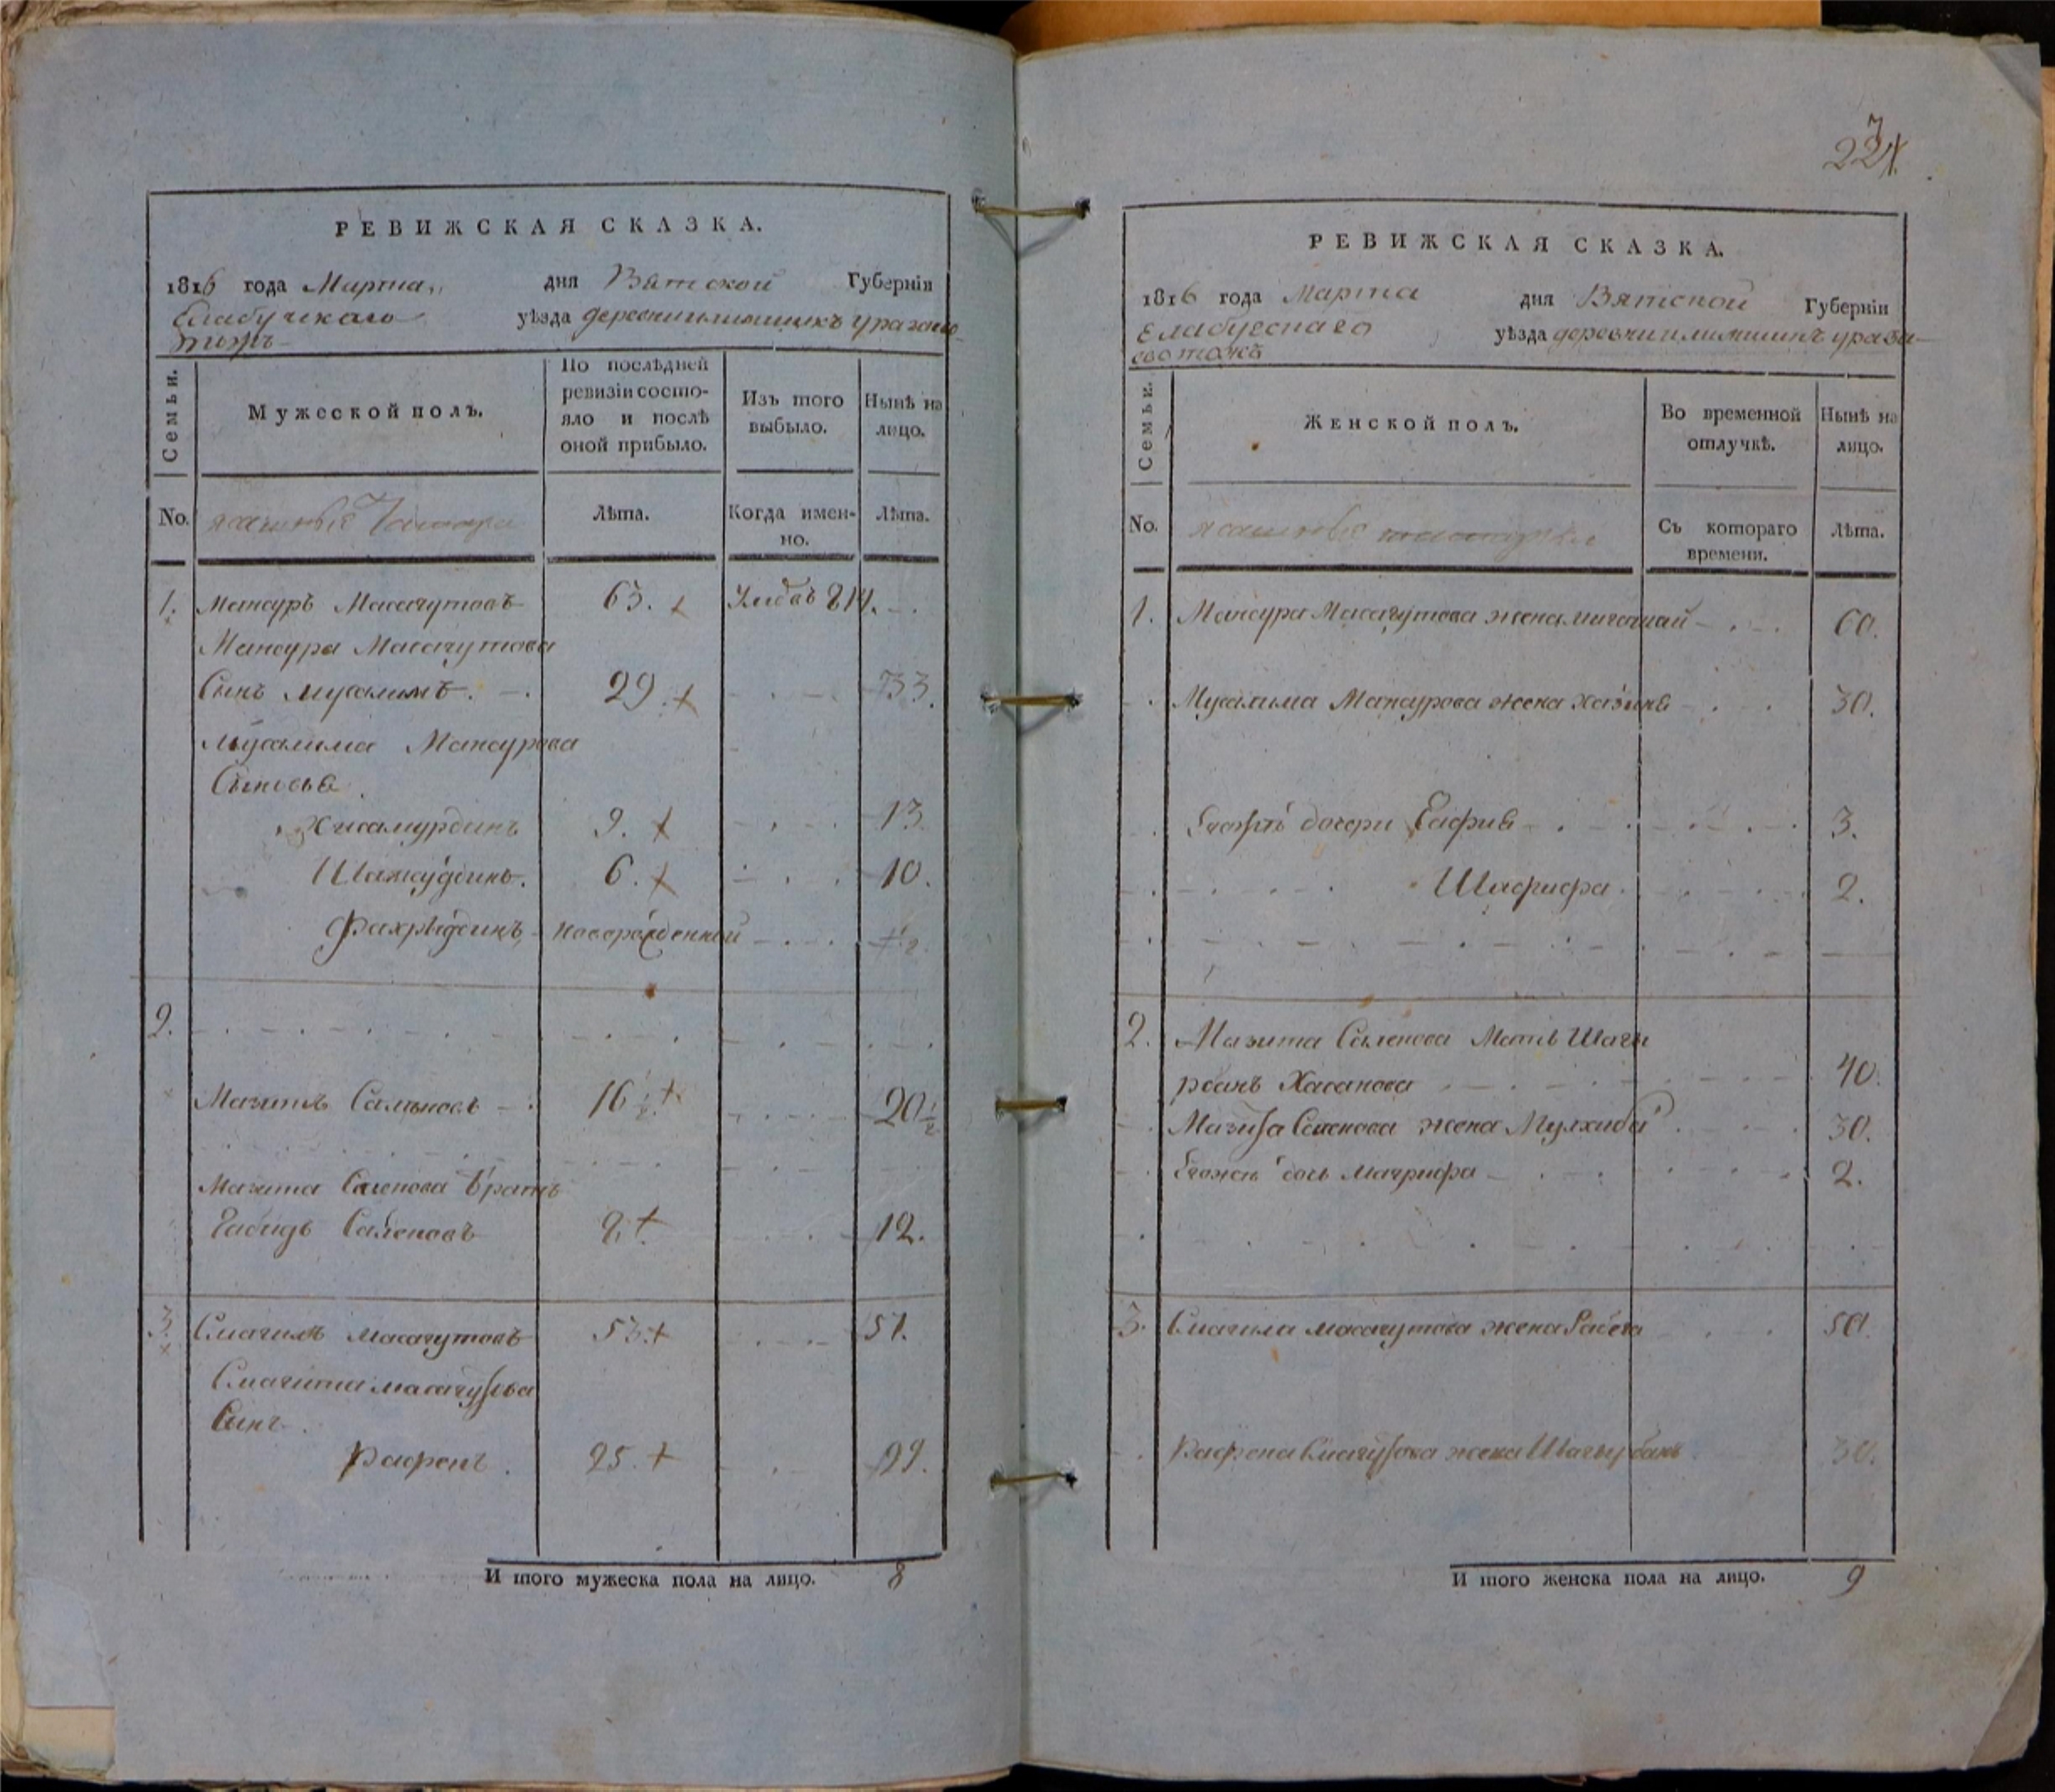 РЕВИЖСКАЯ СКАЗКА.
1816 года Марта дня Вятской Губерніи
Елабучскаго уѣзда деревни
тожъ
Семьи.
Мужеской полъ.
По послѣдней
ревизіи состо-
яло и послѣ
оной прибыло.
Изъ того
выбыло.
Нынѣ на
лицо.
No. ясашные Татара
Лѣта.
Когда имен-
но.
Лѣта.
1. Мансуръ Масагутовъ 63. + 814.
Мансура Масагутова
Сынъ Мусалимъ. 29. + 33.
Мусалима Мансурова
Сыновья
Хисамурдинъ 9. + 13.
6. + 10.
Фахрѣдинъ новорожденной
2.
Мазитъ Саленовъ 16 1/2 + 20 1/2
Мазита Саленова братъ
Габидъ Саленовъ 8. + 12.
3. Смагилъ Масагутовъ 53. + 57.
Смагила Масагутова
Сынъ
Рафенъ. 25. + 29.
И того мужеска пола на лицо. 8
227
РЕВИЖСКАЯ СКАЗКА.
1816 года Марта дня Вятской Губерніи
Елабугскаго уѣзда деревни
тожъ
Семьи.
Женской полъ.
Во временной
отлучкѣ.
Нынѣ на
лицо.
No. ясашные татарки
Съ котораго
времени.
Лѣта.
1. Мансура Масагутова жена 60.
Мусалима Мансурова жена 30.
дочери Сафия 3.
Шарифа 2.
2. Мазита Саленова Мать Шаги
рбанъ Хасанова 40.
Мазита Саленова жена Мулхиба 30.
дочь Магрифа 2.
3. Смагила Масагутова жена Рабега 50.
Рафена Смагилова жена Шагирбанъ 30.
И того женска пола на лицо. 9